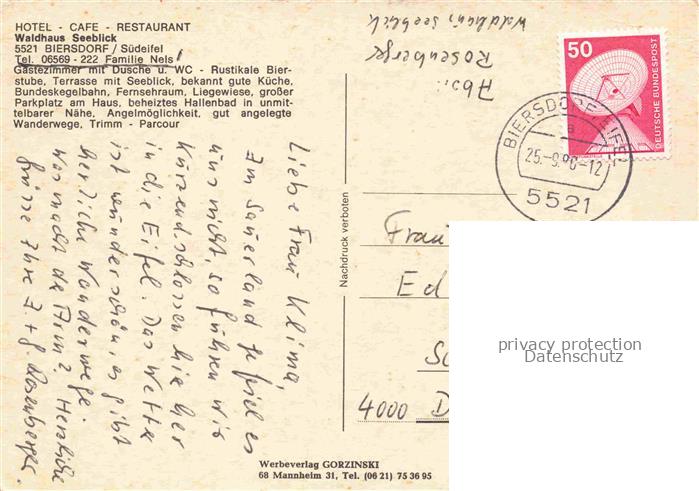 HOTEL - CAFE - RESTAURANT
Waldhaus Seeblick
5521 BIERSDORF / Südeifel
Tel. 06569 - 222 Familie Nels
Gästezimmer mit Dusche u. WC - Rustikale Bier-
stube, Terrasse mit Seeblick, bekannt gute Küche,
Bundeskegelbahn, Fernsehraum, Liegewiese, großer
Parkplatz am Haus, beheiztes Hallenbad in unmit-
telbarer Nähe, Angelmöglichkeit, gut angelegte
Wanderwege, Trimm - Parcour
Liebe Frau Klima,
Im Sauerland gefiel es
uns nicht, so fuhren wir
kurzentschlossen hier her
in die Eifel. Das Wetter
ist wunderschön, es gibt
herrliche Wanderwege.
Was macht der Arm? Herzliche
Grüsse Ihre J. + G. Rosenberger.
Abs.:
Rosenberger
Waldhaus Seeblick
50
DEUTSCHE BUNDESPOST
BIERSDORF, EIFEL
a
25.-9.86-12
5521
Nachdruck verboten
Frau
Ed
4000 D
Werbeverlag GORZINSKI
68 Mannheim 31, Tel. (06 21) 75 36 95
privacy protection
Datenschutz